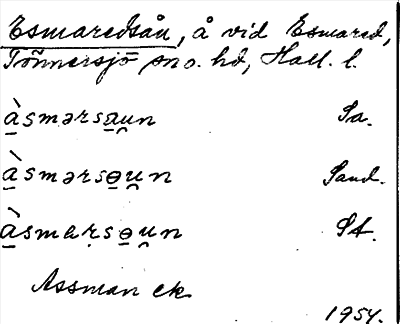 Esmaredsån, å vid Esmared,
Tönnersjö sn o. hd, Hall. l.
àsmərsau̯n Sa.
àsmərsɵu̯n Sand.
àsmeṛsɵu̯n St.
Assman ek
1954.